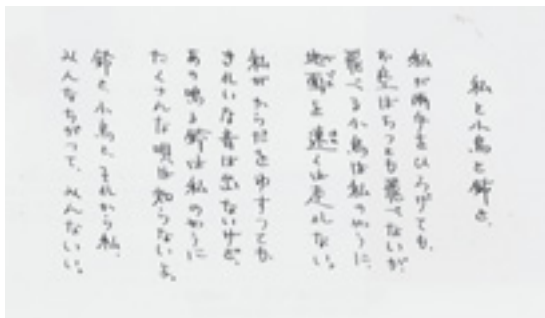 私と小鳥と鈴と、
私が両手をひろげても、
お空はちっとも飛べないが、
飛べる小鳥は私のやうに、
地面を速くは走れない。
私がからだをゆすっても、
きれいな音は出ないけど、
あの鳴る鈴は私のやうに
たくさんな唄は知らないよ。
鈴と、小鳥と、それから私、
みんなちがって、みんないい。